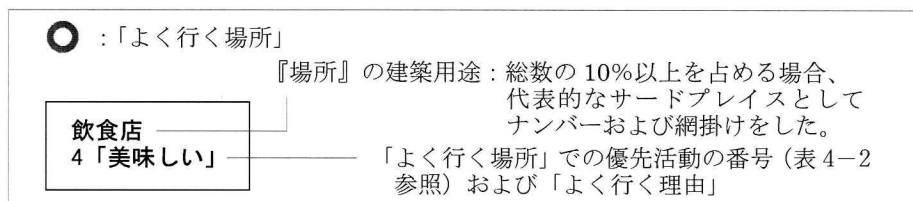 ○ ：「よく行く場所」
『場所』の建築用途：総数の 10%以上を占める場合、
代表的なサードプレイスとして
ナンバーおよび網掛けをした。
飲食店
4「美味しい」
「よく行く場所」での優先活動の番号（表 4－2
参照）および「よく行く理由」